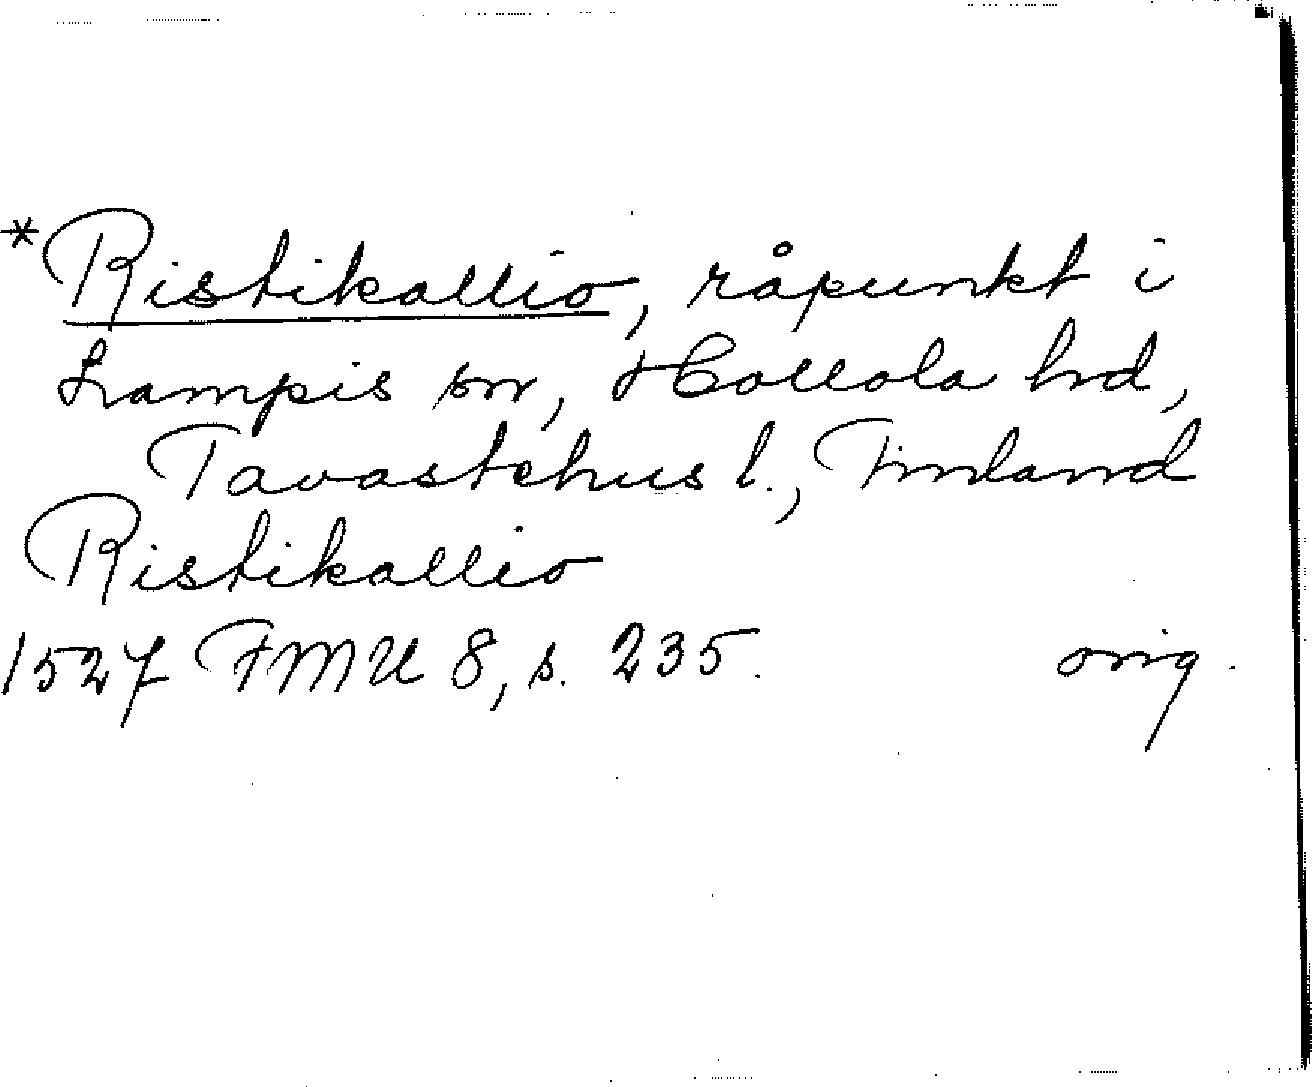 *Ristikallio, råpunkt i
Lampis sn, Hollola hd,
Tavastehus l., Finland
Ristikallio
1527 FMU 8, s. 235. orig.